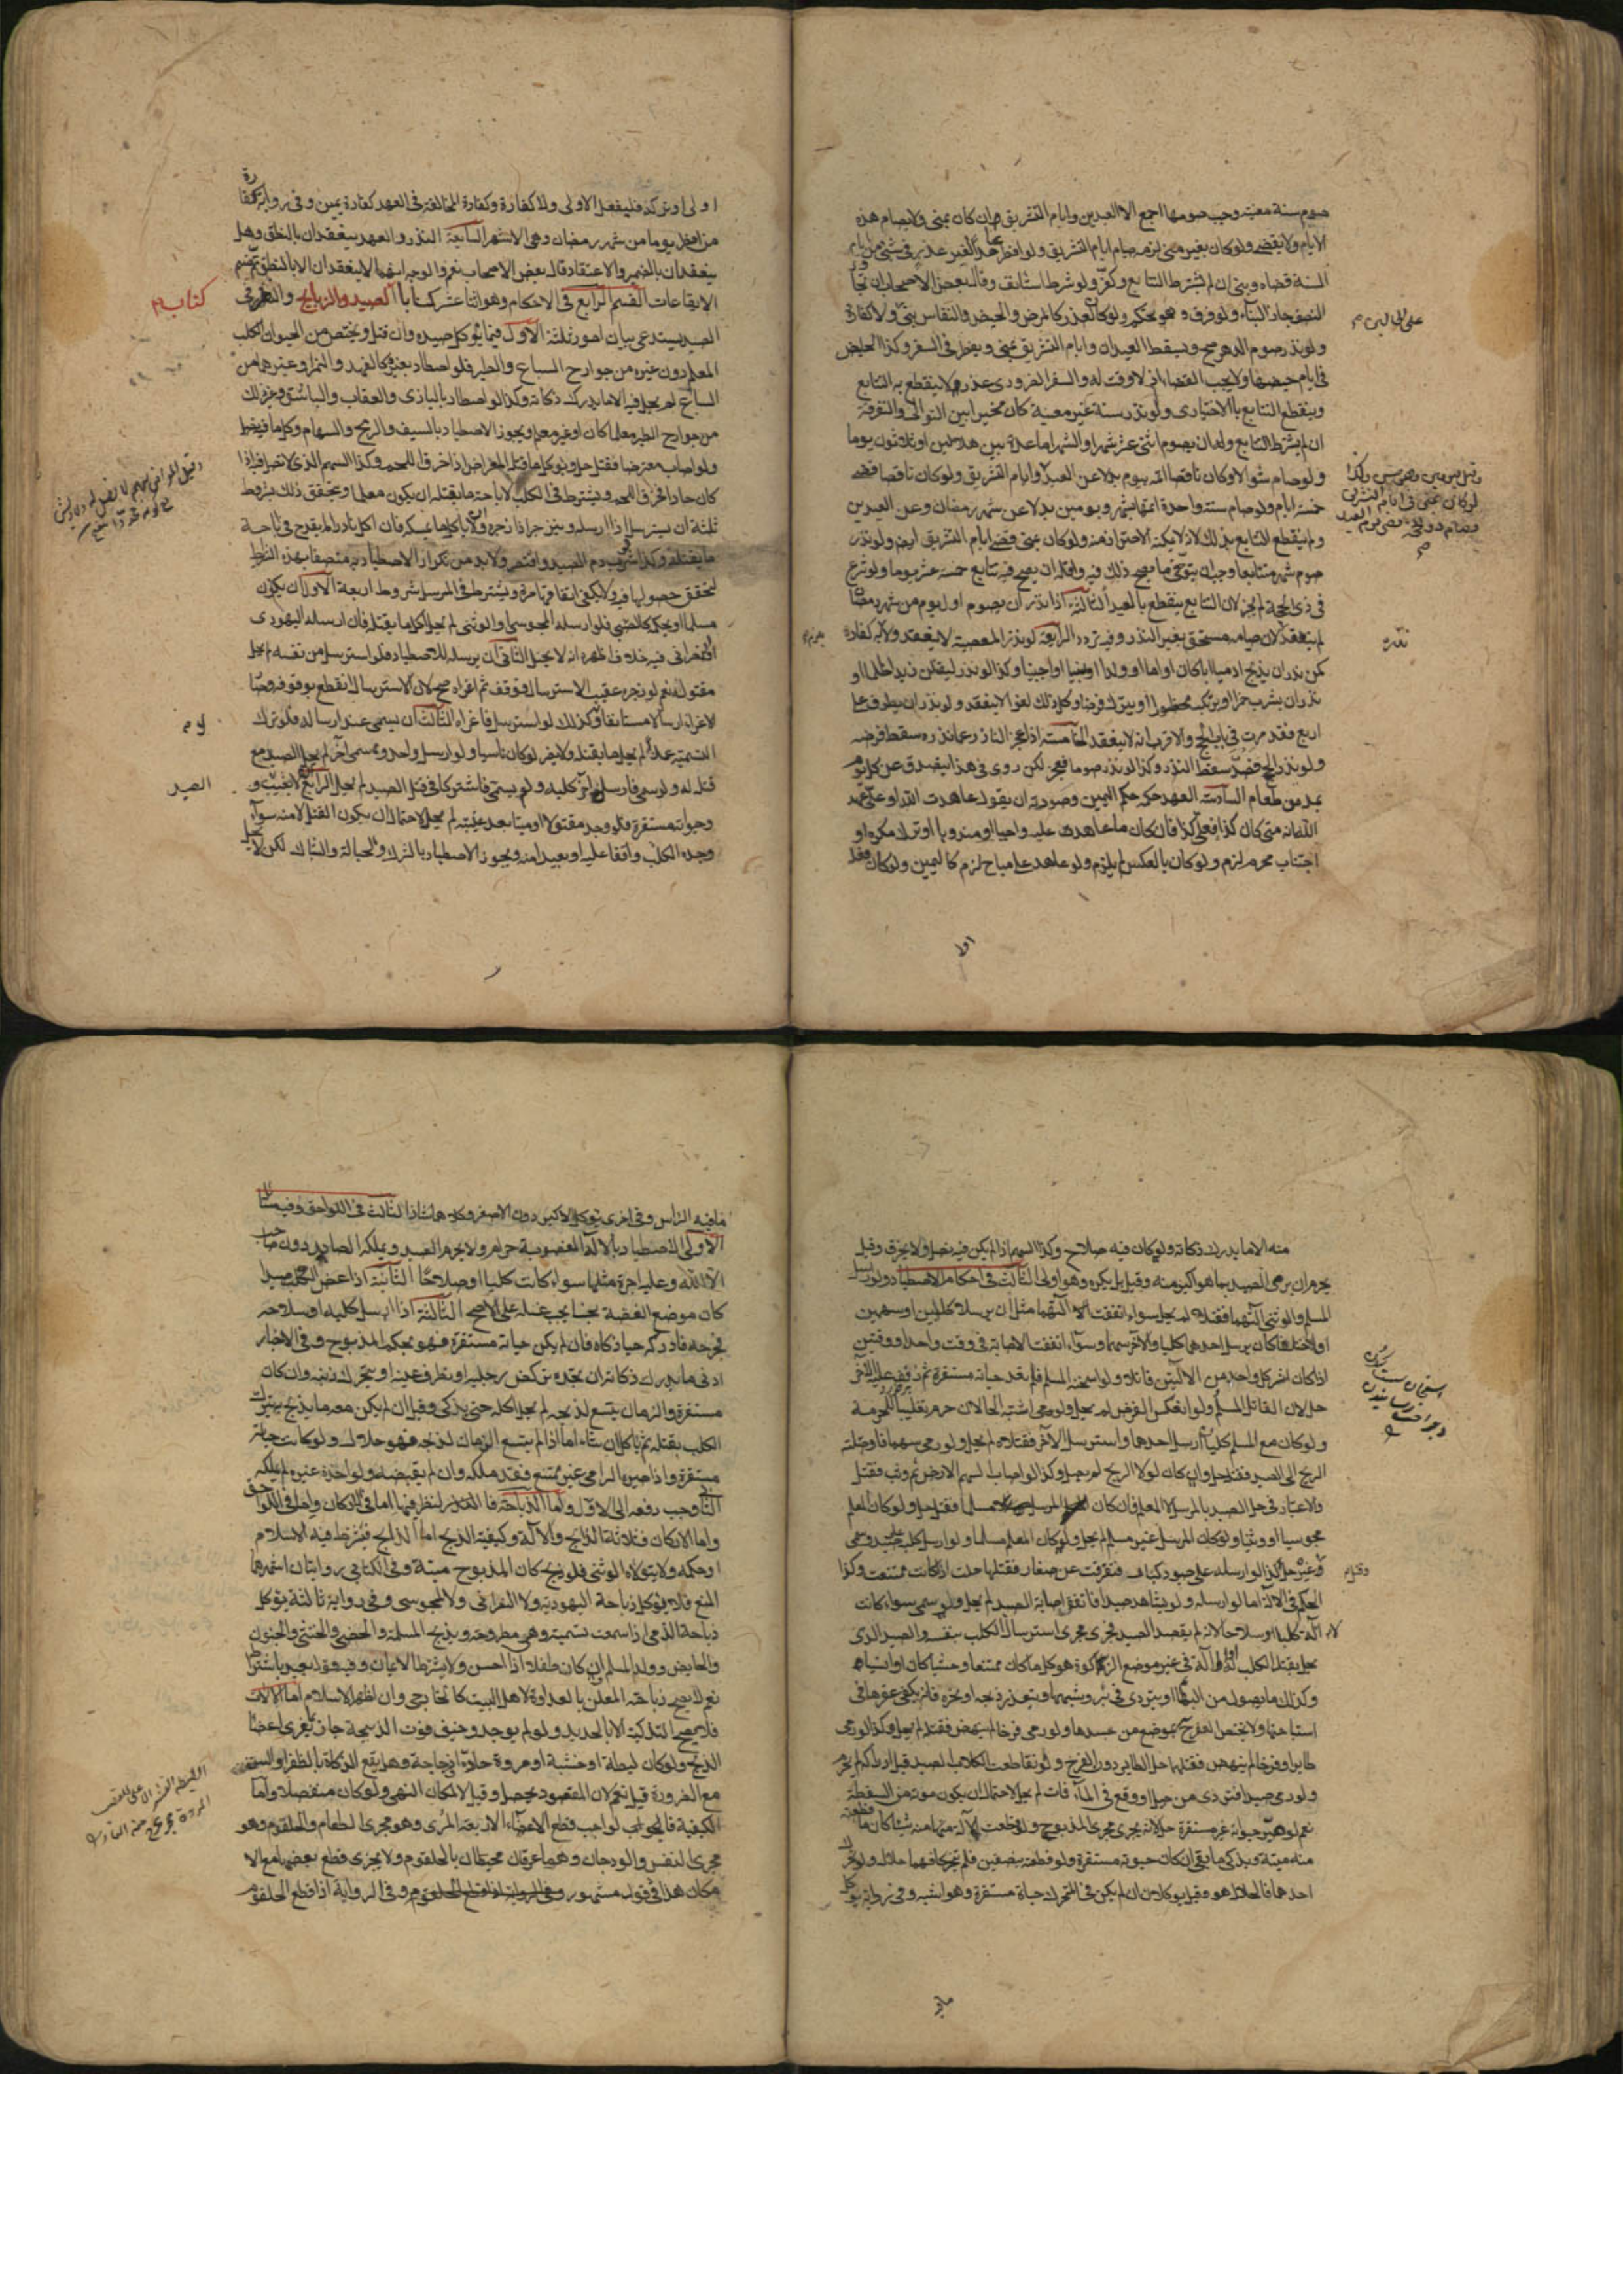 صوم سنة معينة وجب صومها اجمع الا العيدين وايام التشريق ان كان بمنى ولا يصام هذه
الايام ولا يقضى ولو كان بغير منى لزمه صيام ايام التشريق ولو افطر عمدا لغير عذر في شيء من ايام
السنة قضاه وبنى ان لم يشترط التتابع وكفر ولو شرط استانف وقال بعض الاصحاب ان تجاوز
النصف جاز البناء ولو فرق وهو تحكم ولو كان لعذر كالمرض والحيض والنفاس بنى ولا كفارة
ولو نذر صوم الدهر صح ويسقط العيدان وايام التشريق بمنى ويفطر في السفر وكذا الحايض
في ايام حيضها ولا يجب القضاء اذ لا وقت له والسفر الضروري عذر لا ينقطع به التتابع
وينقطع التتابع بالاختياري ولو نذر سنة غير معينة كان مخيرا بين التوالي والتفرقة
ان لم يشترط التتابع وله ان يصوم اثني عشر شهرا والشهر اما عدة بين هلالين او ثلاثون يوما
ولو صام شوالا وكان ناقصا اتمه بيوم بدلا عن العيد وايام التشريق ولو كان ناقصا قضى
خمسة ايام ولو صام سنة واحدة اتمها بشهر ويومين بدلا عن شهر رمضان وعن العيدين
ولم ينقطع التتابع بذلك لانه لا يمكنه الاحتراز منه ولو كان بمنى قضى ايام التشريق ايضا ولو نذر
صوم شهر متتابعا وجب ان يتوخى ما يصح ذلك فيه واقله ان يصح فيه تتابع خمسة عشر يوما ولو شرع
في ذي الحجة لم يجز لان التتابع ينقطع بالعيد الثالثة اذا نذر ان يصوم اول يوم من شهر رمضان
لم ينعقد لان صيامه مستحق بغير النذر وفيه تردد الرابعة لو نذر المعصية لا ينعقد ولا كفارة
كمن نذر ان يذبح ادميا ابا كان او اما او ولدا او نسيبا او اجنبيا وكذا لو نذر ليقتلن زيدا ظلما او
نذر ان يشرب خمرا او يرتكب محظورا او يترك فرضا وكل ذلك لغو لا ينعقد ولو نذر ان يطوف على
اربع فقد مرت في باب الحج والاقرب انه لا ينعقد الخامسة اذا عجز الناذر عما نذره سقط فرضه
ولو نذر الحج فصد سقط النذر وكذا لو نذر صوما فعجز لكن روي في هذا يتصدق عن كل يوم
بمد من طعام السادسة العهد حكمه حكم اليمين وصورته ان يقول عاهدت الله او علي عهد
الله انه متى كان كذا فعلي كذا فان كان ما عاهد عليه واجبا او مندوبا او ترك مكروه او
اجتناب محرم لزم ولو كان بالعكس لم يلزم ولو عاهد على مباح لزم كاليمين ولو كان فعله
اولى
نذره
اولى او تركه فليفعل الاولى ولا كفارة وكفارة المخالفة في العهد كفارة يمين وفي رواية كفارة
من افطر يوما من شهر رمضان وهي الاشهر السابعة النذر والعهد ينعقدان بالنطق وهل
ينعقدان بالضمير والاعتقاد قال بعض الاصحاب نعم والوجه انهما لا ينعقدان الا بالنطق تم قسم
الايقاعات القسم الرابع في الاحكام وهو اثنا عشر كتابا الصيد والذبايح والنظر في
الصيد يستدعي بيان امور ثلثة الاول فيما يؤكل صيده وان قتل ويختص من الحيوان الكلب
المعلم دون غيره من جوارح السباع والطير فلو اصطاد بغيره كالفهد والنمر او غيرهما من
السباع لم يحل منه الا ما يدرك ذكاته وكذا لو اصطاد بالبازي والعقاب والباشق وغير ذلك
من جوارح الطير معلما كان او غير معلم ويجوز الاصطياد بالسيف والرمح والسهام وكل ما فيه نصل
ولو اصاب معترضا فقتل حل ويؤكل ما قتله المعراض اذا خرق اللحم وكذا السهم الذي لا نصل فيه اذا
كان حادا فخرق اللحم ويشترط في الكلب لاباحة ما يقتله ان يكون معلما ويتحقق ذلك بشروط
ثلثة ان يسترسل اذا ارسله وينزجر اذا زجره ولا ياكل ما يمسكه فان اكل نادرا لم يقدح في اباحة
ما يقتله وكذا لو شرب دم الصيد واقتصر ولا بد من تكرار الاصطياد به متصفا بهذه الشرايط
لتحقق حصولها فيه ولا يكفي اتفاقها مرة ويشترط في المرسل شروط اربعة الاول ان يكون
مسلما او بحكمه كالصبي فلو ارسله المجوسي او الوثني لم يحل اكل ما يقتله فان ارسله اليهودي
او النصراني فيه خلاف اظهره انه لا يحل الثاني ان يرسله للاصطياد فلو استرسل من نفسه لم يحل
مقتوله نعم لو زجره عقيب الاسترسال فوقف ثم اغراه صح لان الاسترسال انقطع بوقوفه وصار
الاغراء ارسالا مستانفا وكذلك لو استرسل فاغراه الثالث ان يسمي عند ارساله فلو ترك
التسمية عمدا لم يحل ما يقتله ولا يضر لو كان ناسيا ولو ارسل واحد وسمى اخر لم يحل الصيد مع
قتله له ولو سمى فارسل اخر كلبه ولم يسم فاشتركا في قتل الصيد لم يحل الرابع لا يغيب و
حياته مستقرة فلو وجد مقتولا او ميتا بعد غيبته لم يحل لاحتمال ان يكون القتل لا منه سواء
وجد الكلب واقفا عليه او بعيدا منه ويجوز الاصطياد بالشرك والحبالة والشباك لكن لا يحل
كتاب
الصيد
منه الا ما يدرك ذكاته ولو كان فيه سلاح وكذا السهم اذا لم يكن فيه نصل ولا يخرق وقيل
يحرم ان يرمى الصيد بما هو اكبر منه وقيل بل يكره وهو اولى الثالث في احكام الاصطياد ولو ارسل
المسلم والوثني آلتهما فقتلاه لم يحل سواء اتفقت آلتهما مثل ان يرسلا كلبين او سهمين
او اختلفا كان يرسل احدهما كلبا والاخر سهما وسواء اتفقت الاصابة في وقت واحد او وقتين
اذا كان اثر كل واحد من الالتين قاتلا ولو اثخنه المسلم فلم يعد حياته مستقرة ثم ذفف عليه الاخر
حل لان القاتل المسلم ولو انعكس الفرض لم يحل ولو اشتبه الحالان حرم تغليبا للحرمة
ولو كان مع المسلم كلبان ارسل احدهما واسترسل الاخر فقتلاه لم يحل ولو رمى سهما فاوصلته
الريح الى الصيد فقتله حل وان كان لولا الريح لم يصل وكذا لو اصاب السهم الارض ثم وثب فقتل
والاعتبار في حل الصيد بالمرسل لا المعلم فان كان المرسل مسلما فقتل حل ولو كان المعلم
مجوسيا او وثنيا ولو كان المرسل غير مسلم لم يحل ولو كان المعلم مسلما ولو ارسل كلبه على صيد وسمى
فقتل غيره حل وكذا لو ارسله على صيود كبار فتفرقت عن صغار فقتلها حلت اذا كانت ممتنعة وكذا
الحكم في الالة اما لو ارسله ولم يشاهد صيدا فاتفق اصابة الصيد لم يحل ولو سمى سواء كانت
الالة كلبا او سلاحا لانه لم يقصد الصيد فجرى مجرى استرسال الكلب بنفسه والصيد الذي
يحل بقتل الكلب له او الآلة في غير موضع الذكاة هو كل ما كان ممتنعا وحشيا كان او انسيا
وكذلك ما يصول من البهائم او يتردى في بئر وشبهها ويتعذر ذبحه او نحره فانه يكفي عقرها في
استباحتها ولا يختص العقر بموضع من جسدها ولو رمى فرخا لم ينهض فقتله لم يحل وكذا لو رمى
طايرا وفرخا لم ينهض فقتلهما حل الطاير دون الفرخ ولو تقاطعت الكلاب الصيد قبل ادراكه لم يحرم
ولو رمى صيدا فتردى من جبل او وقع في الماء فمات لم يحل لاحتمال ان يكون موته من السقطة
نعم لو صير حياته غير مستقرة حل لانه يجري مجرى المذبوح ولو قطعت الآلة منه شيئا كان ما قطعته
منه ميتة ويذكى ما بقي ان كانت حيوته مستقرة ولو قطعه بنصفين فلم يتحركا فهما حلال ولو تحرك
احدهما فالحلال هو وقيل يؤكلان ان لم يكن في المتحرك حياة مستقرة وهو اشبه وفي رواية يؤكل
ما فيه
ما فيه الراس وفي اخرى يؤكل الاكبر دون الاصغر وكلاهما شاذ الثالث في اللواحق وفيه مسائل
الاولى الاصطياد بالآلة المغصوبة حرام ولا يحرم الصيد ويملكه الصايد دون صاحب
الآلة وعليه اجرة مثلها سواء كانت كلبا او سلاحا الثانية اذا عض الكلب صيدا
كان موضع العضة نجسا يجب غسله على الاصح الثالثة اذا ارسل كلبه او سلاحه
فجرحه فادركه حيا ذكاه فان لم يكن حياته مستقرة فهو بحكم المذبوح وفي الاخبار
ادنى ما يدرك ذكاته ان يجده يركض رجليه او يطرف عينه او يتحرك ذنبه وان كان
مستقرة والزمان يتسع لذبحه لم يحل اكله حتى يذكى وقيل ان لم يكن معه ما يذبح به يترك
الكلب يقتله ثم ياكل ان شاء اما اذا لم يتسع الزمان لذبحه فهو حلال ولو كانت حياته
مستقرة واذا صيره الرامي غير ممتنع فقد ملكه وان لم يقبضه ولو اخذه غيره لم يملكه
الثاني ووجب دفعه الى الاول واما الذباحة فالنظر فيها اما في الاركان واما في اللواحق
واما الاركان فثلاثة الذابح والآلة وكيفية الذبح اما الذابح فيشترط فيه الاسلام
او حكمه ولا يتولاه الوثني فلو ذبح كان المذبوح ميتة وفي الكتابي روايتان اشهرهما
المنع فلا يؤكل ذباحة اليهودي ولا النصراني ولا المجوسي وفي رواية ثالثة يؤكل
ذباحة الذمي اذا سمعت تسميته وهي مطروحة ويذبح المسلمة والخصي والخنثى والجنب
والحايض وولد المسلم ان كان طفلا اذا احسن ولا يشترط الايمان وفيه قول بعيد باشتراطه
نعم لا يصح ذباحة المعلن بالعداوة لاهل البيت كالخارجي وان اظهر الاسلام اما الآلة
فلا يصح التذكية الا بالحديد ولو لم يوجد وخيف فوت الذبيحة جاز بما يفري اعضاء
الذبح ولو كان ليطة او خشبة او مروة حادة او زجاجة وهل يقع الذكاة بالظفر او السن
مع الضرورة قيل نعم لان المقصود يحصل وقيل لا لمكان النهي ولو كان منفصلا واما
الكيفية فالواجب قطع الاعضاء الاربعة المرئ وهو مجرى الطعام والحلقوم وهو
مجرى النفس والودجان وهما عرقان محيطان بالحلقوم ولا يجزي قطع بعضها مع الا
مكان هذا في قول مشهور وفي الرواية اذا قطع الحلقوم